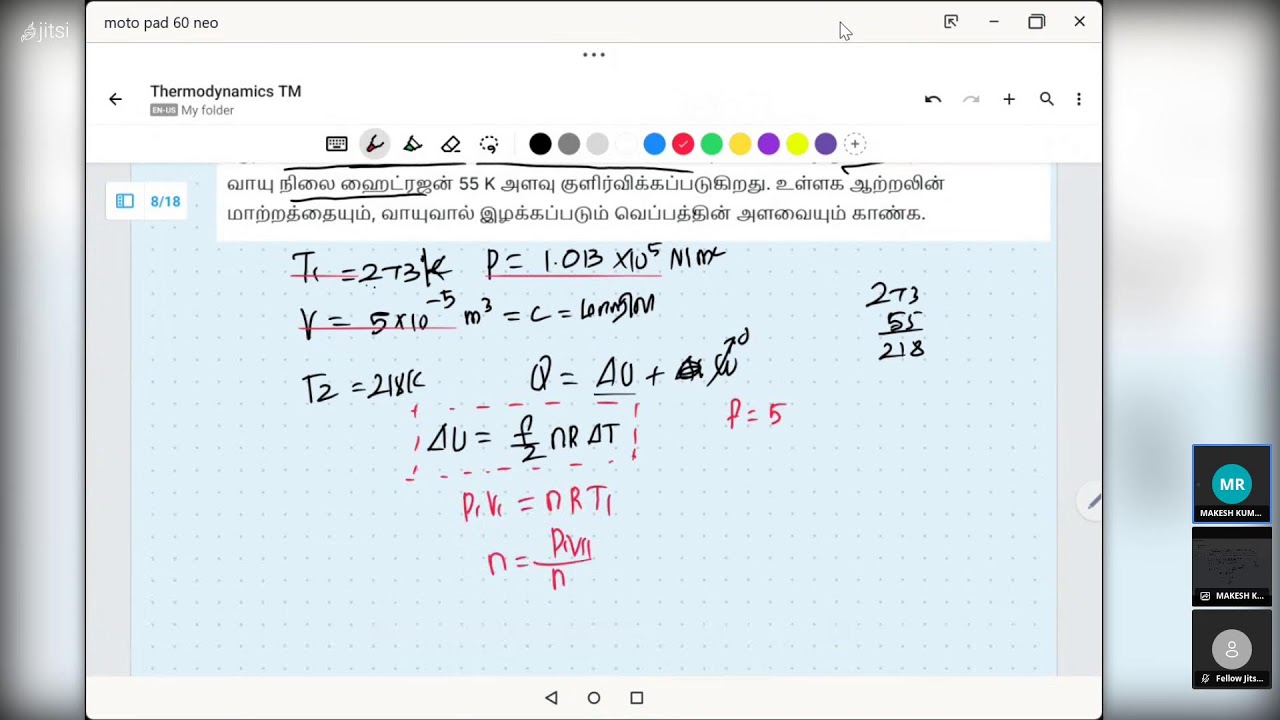 jitsi
moto pad 60 neo
Thermodynamics TM
EN-US My folder
8/18
வாயு நிலை ஹைட்ரஜன் 55 K அளவு குளிர்விக்கப்படுகிறது. உள்ளக ஆற்றலின்
மாற்றத்தையும், வாயுவால் இழக்கப்படும் வெப்பத்தின் அளவையும் காண்க.
T₁ = 273K P = 1.013 × 10⁵ N/m²
V = 5×10⁻⁵ m³ = C = மாறிலி
273
55
218
T2 = 218K Q = ΔU +
ΔU = f/2 nR ΔT
f = 5
P₁V₁ = nRT₁
n = P₁V₁/n
MR
MAKESH KUM...
MAKESH K...
Fellow Jits...